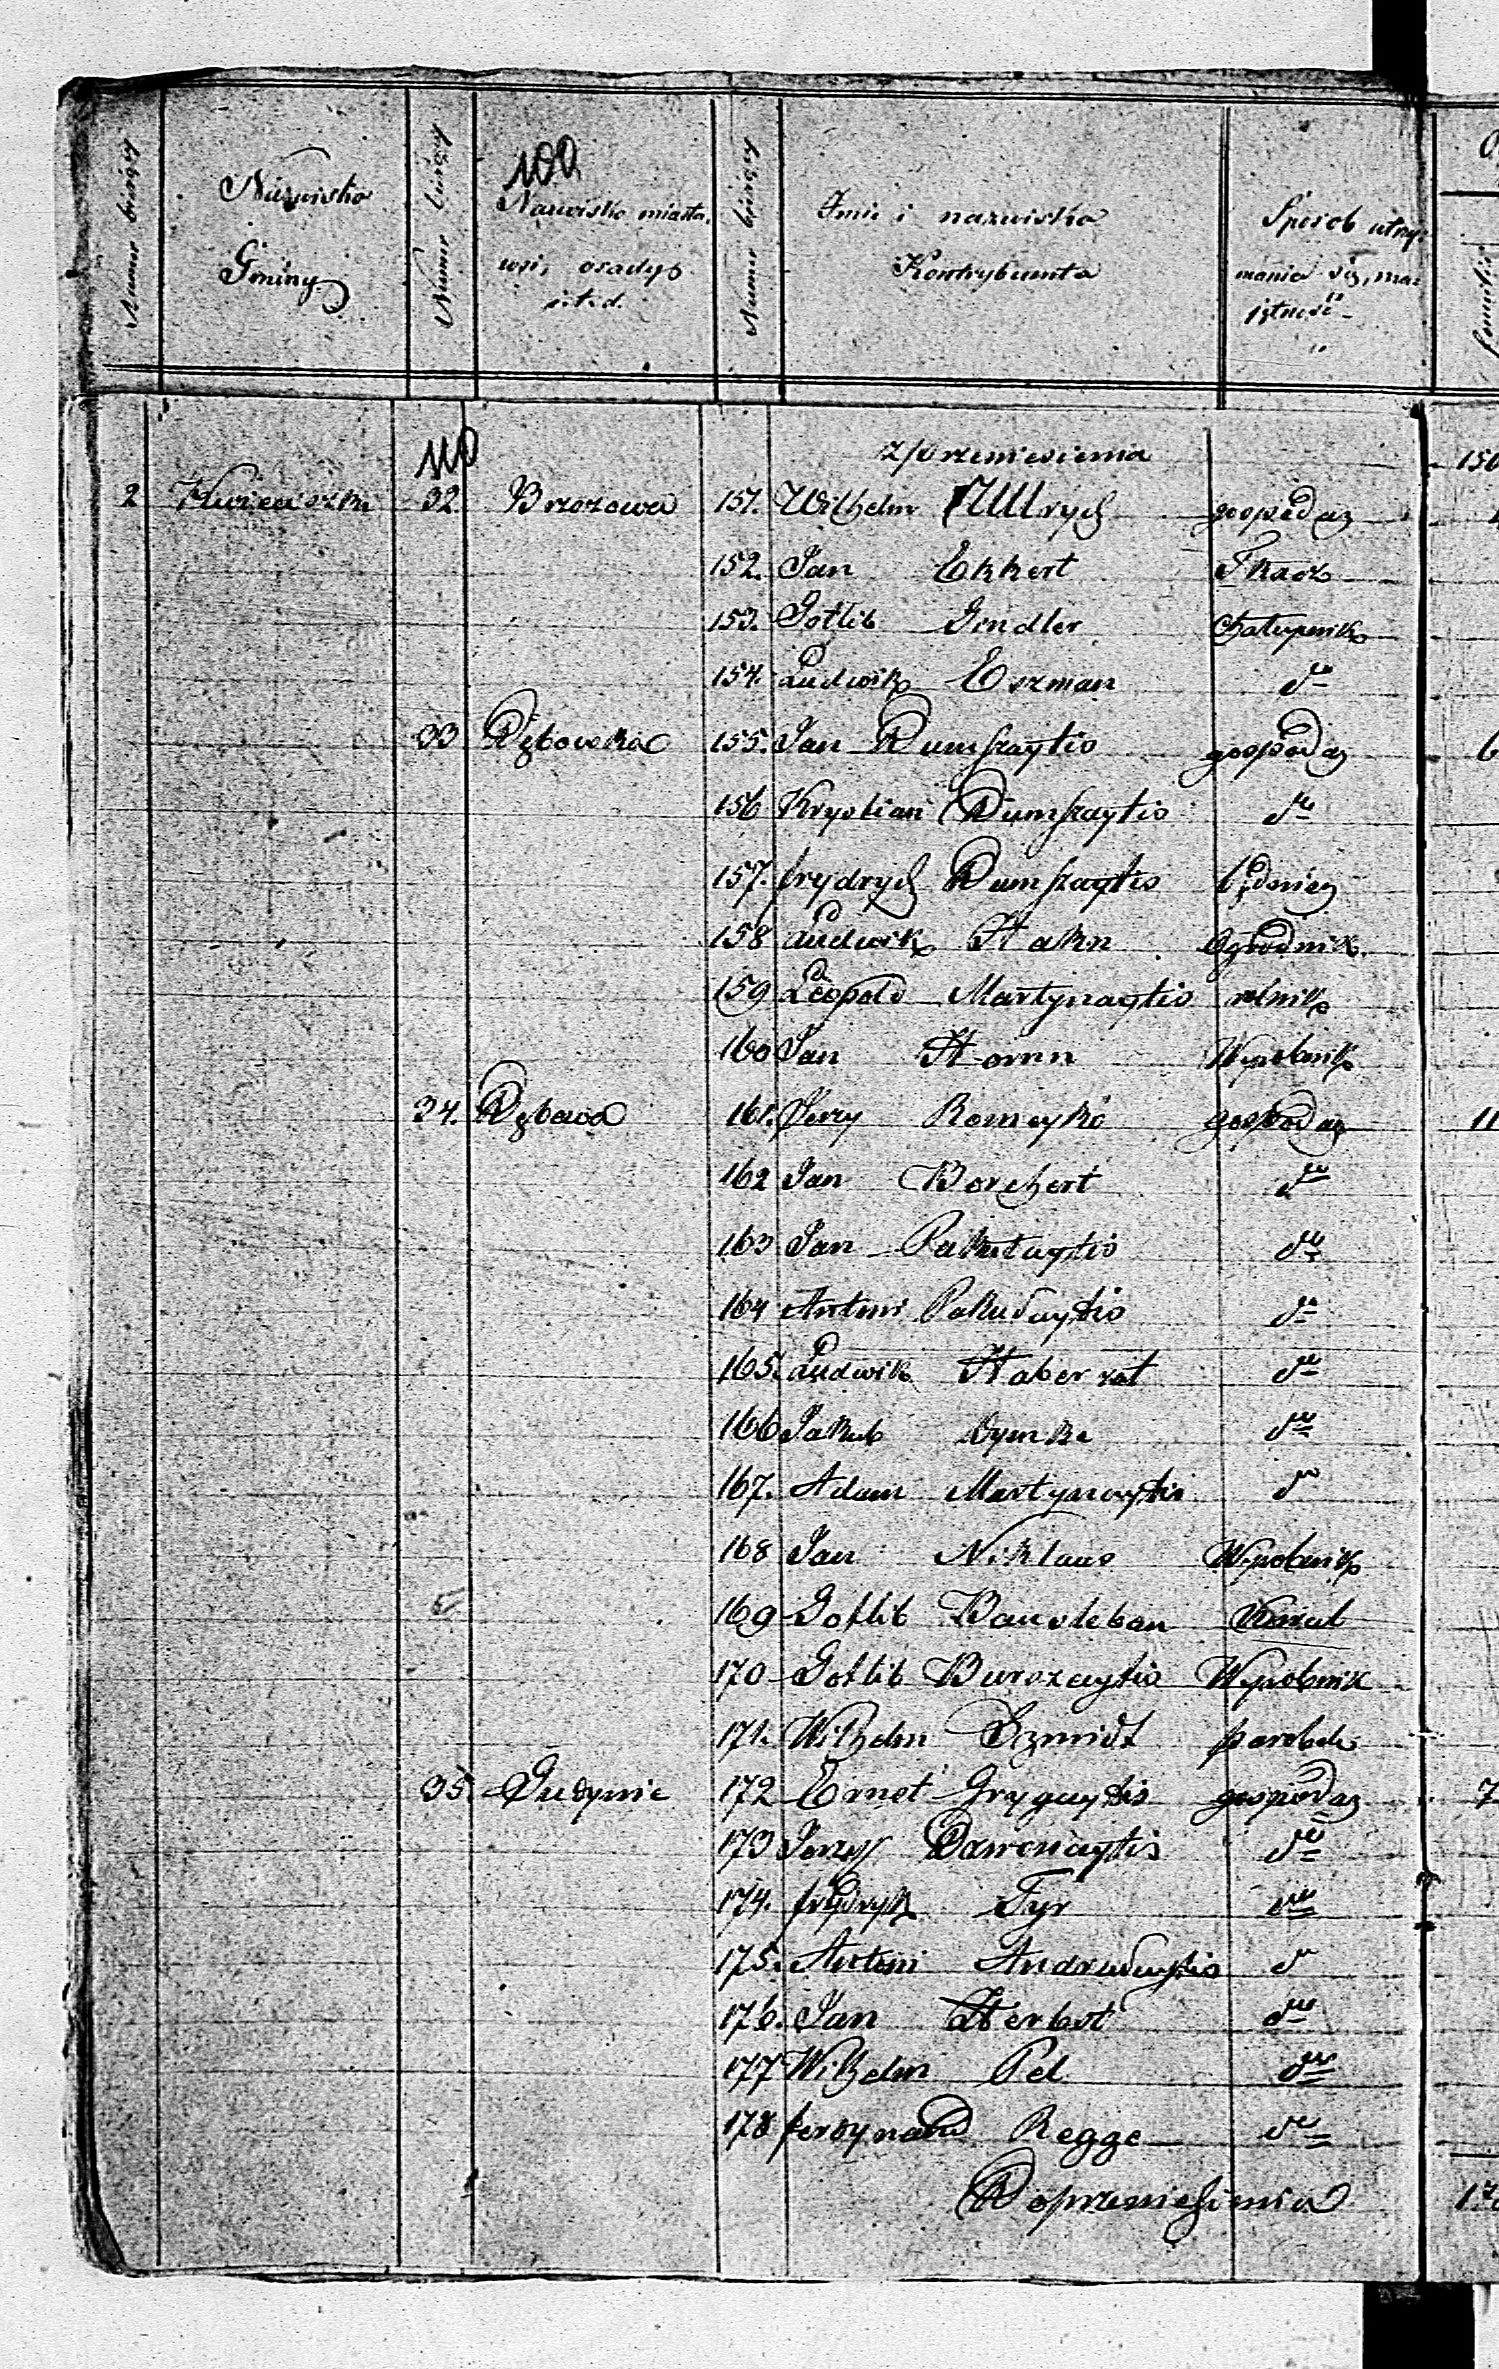 100
Numer bieżący
Nazwisko Gminy
Numer bieżący
Nazwisko miasta, wsi, osady i.t.d.
Numer bieżący
Imie i nazwisko Kontrybuenta
Sposób utrzymania się, majętność
110
z przeniesienia 150
2 32. Brozowa 151. Wilhelm Ullrych gospodaz
152. Jan Ekkert Tkacz
153. Gotlib Gindler chałupnik
154. Ludwik Eszman do
33 Dębowka 155. Jan Dumszaytis gospodaz 6
156 Krystian Dumszaytis do
157. frydrych Dumszaytis
158 Ludwik Hakn Ogrodnik
159 Leopold Martynaytis rolnik
160 Jan Homn Wyrobnik
34. Dębowa 161. Jerzy Romeyko gospodaz 11
162 Jan Borchert do
163 Jan Pakutaytis do
164 Antoni Pakudaytis do
165. Ludwik Haberrat do
166 Jakub Dymke do
167. Adam Martynaytis do
168 Jan Niklaus Wyrobnik
169 Gotlib Bausleban Kowal
170 Gotlib Burszaytis Wyrobnik
171. Wilhelm Szmidt parobek
35. Gudynie 172 Ernst Grygaytis gospodaz 7
173 Jerzy Dawenaytis do
174. frydryk Tyr do
175. Antoni Andrudaytis do
176. Jan Herbst do
177 Wilhelm Pel do
178 ferdynand Regge do
Do przeniesienia